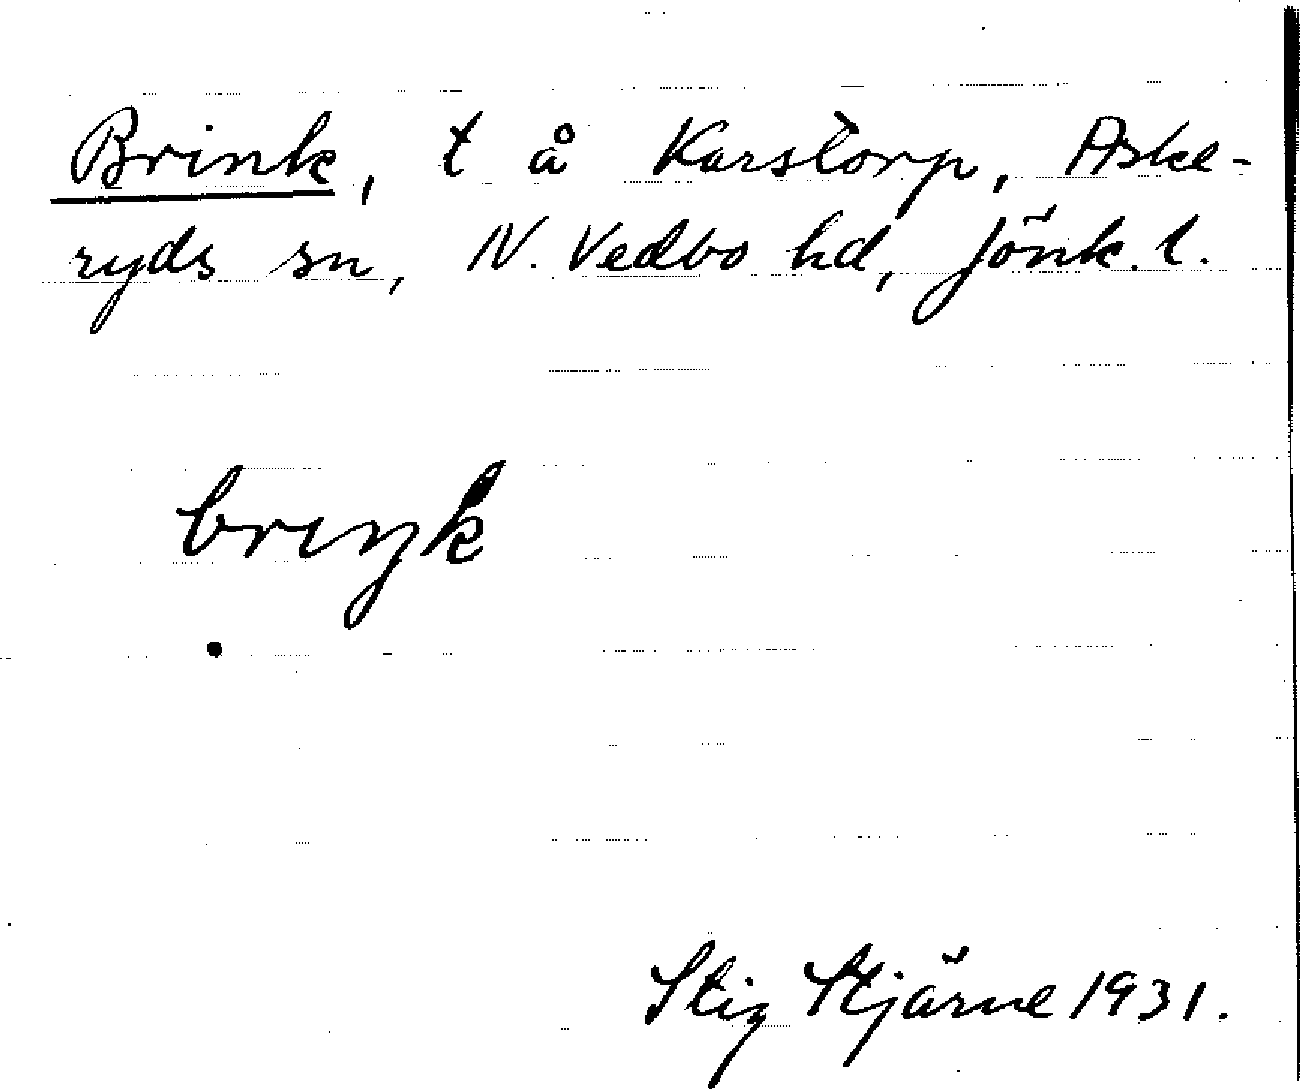 Brink, t å Karstorp, Aske-
ryds sn, N. Vedbo hd, Jönk. l.
briŋk
Stig Stjärne 1931.